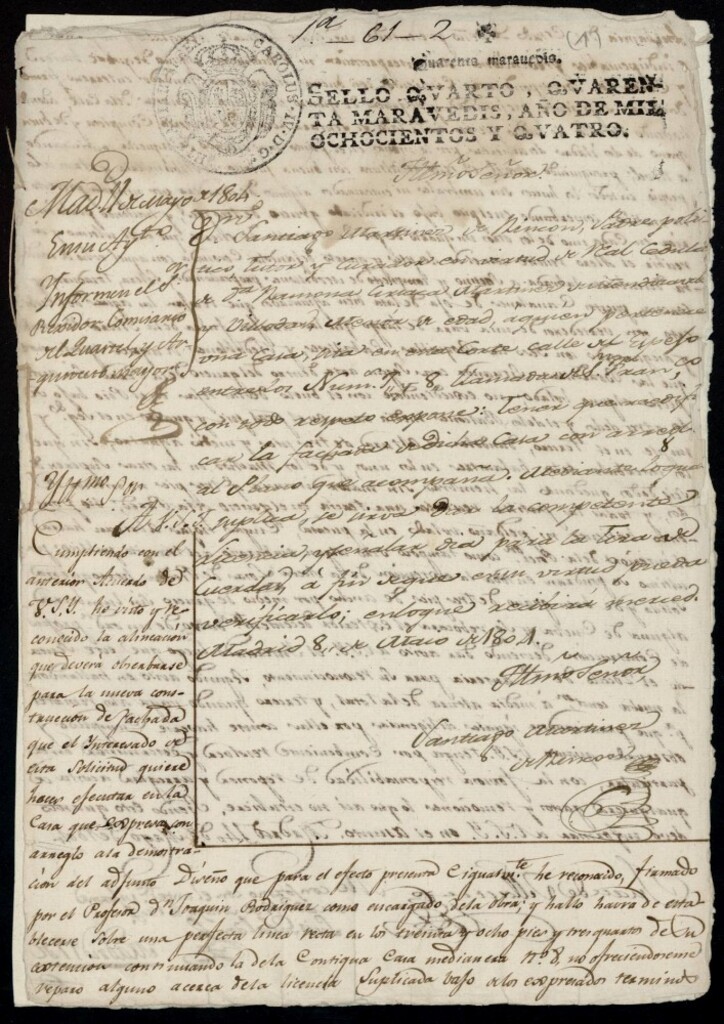 1ª 61-2
(11)
CAROLUS IV D. G.
Quarenta maravedis.
SELLO QVARTO, QVAREN-
TA MARAVEDIS, AÑO DE MIL
OCHOCIENTOS Y QVATRO.
Yltmo Señor
Madrid 11 de Mayo de 1804
En su Aytto
Informen el Sr
Regidor Comisario
del Quartel, y Ar-
quitecto Mayor
Dn Santiago Martinez de Rincon, Padre poli-
tico, tutor y Curador en virtud de Real Cedula
de Da Ramona
y menor de edad, a quien pertenece
una Casa, sita en esta Corte calle del
entre los Num. 7 y 8 manzana
con todo respeto expone: tener que
car la fachada de dicha Casa con arreglo
al Plano que acompaña. Mediante lo qual
A V.S.Y. Suplica, se sirva dar la competente
Licencia, y señalar dia para la tira de
Cuerdas, á fin de que en su virtud pueda
verificarlo; en lo que recibirá merced.
Madrid 8 de Maio de 1804.
Yltmo Señor
Santiago Martinez
de Rincon
Yltmo. Sor.
Cumpliendo con el
anterior Acuerdo de
V.S.Y. he visto y re-
conocido la alineacion
que deverá observarse
para la nueva cons-
truccion de fachada
que el Interesado en
esta Solicitud quiere
hacer efecutar en la
Casa que expresa con
arreglo a la demostra-
cion del adjunto Diseño que para el efecto presenta é igualmte he reconocido, firmado
por el Profesor dn Joaquin Rodriguez como encargado de la obra; y hallo havra de esta-
blecerse sobre una perfecta linea recta en los treinta y ocho pies y tres quartos de su
extencion continuando la de la Contigua Casa medianera no. 8, no ofreciendoseme
reparo alguno acerca de la licencia Suplicada vajo de los expresados terminos